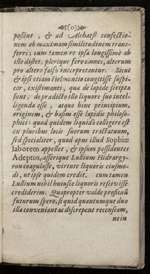 pollent, & ad Alchahest confectio-
nem ob maximam similitudinem trans-
fert; cum tamen re ipsa longissimè ab
isto distet, plerique ferè omnes, alterum
pro altero falsò interpretantur. Sicut
& ipse etiam Helmontio contigisse suspi-
cor, existimanti, quæ de lapide scripta
sunt, de prædicto isto liquore fore intel-
ligenda esse, atque hinc principium,
originem, & basim esse lapidis philoso-
phici: quod quidem liquidò colligere est
ex pluribus locis suorum tractatuum,
sed specialiter, quod apud illud Sophiæ
laborem appellet, & ipsum possidentem
Adeptos, asseritque Ludum Hydrargy-
rum coagulasse, virtute liquoris ejusmo-
di, ut ipse quidem credit. cum tamen
Ludum nihil hujusce liquoris referre sit
credendum. Quapropter valdè proficuum
futurum spero, si quid quantumque duo
illa conveniant ac discrepent recenseam,
nem